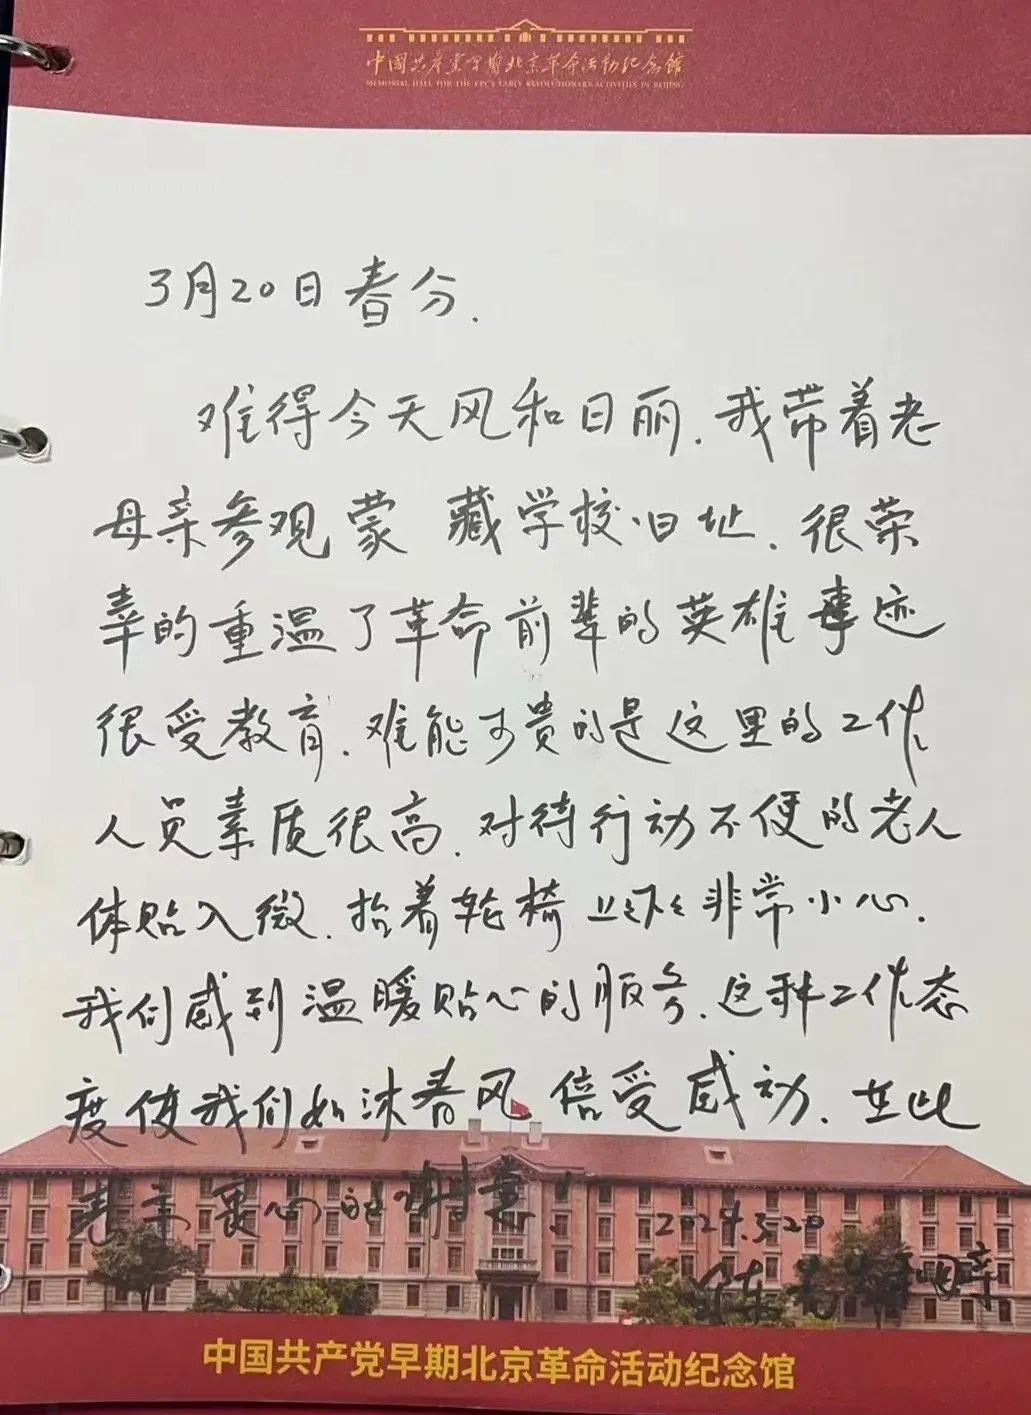 中国共产党早期北京革命活动纪念馆
MEMORIAL HALL FOR THE CPC'S EARLY REVOLUTIONARY ACTIVITIES IN BEIJING
3月20日春分.
难得今天风和日丽.我带着老
母亲参观蒙藏学校旧址.很荣
幸的重温了革命前辈的英雄事迹
很受教育.难能可贵的是这里的工作
人员素质很高.对待行动不便的老人
体贴入微.抬着轮椅上上下下非常小心.
我们感到温暖贴心的服务.这种工作态
度使我们如沐春风倍受感动.在此
表示衷心的谢意!
2024.3.20
陈
中国共产党早期北京革命活动纪念馆